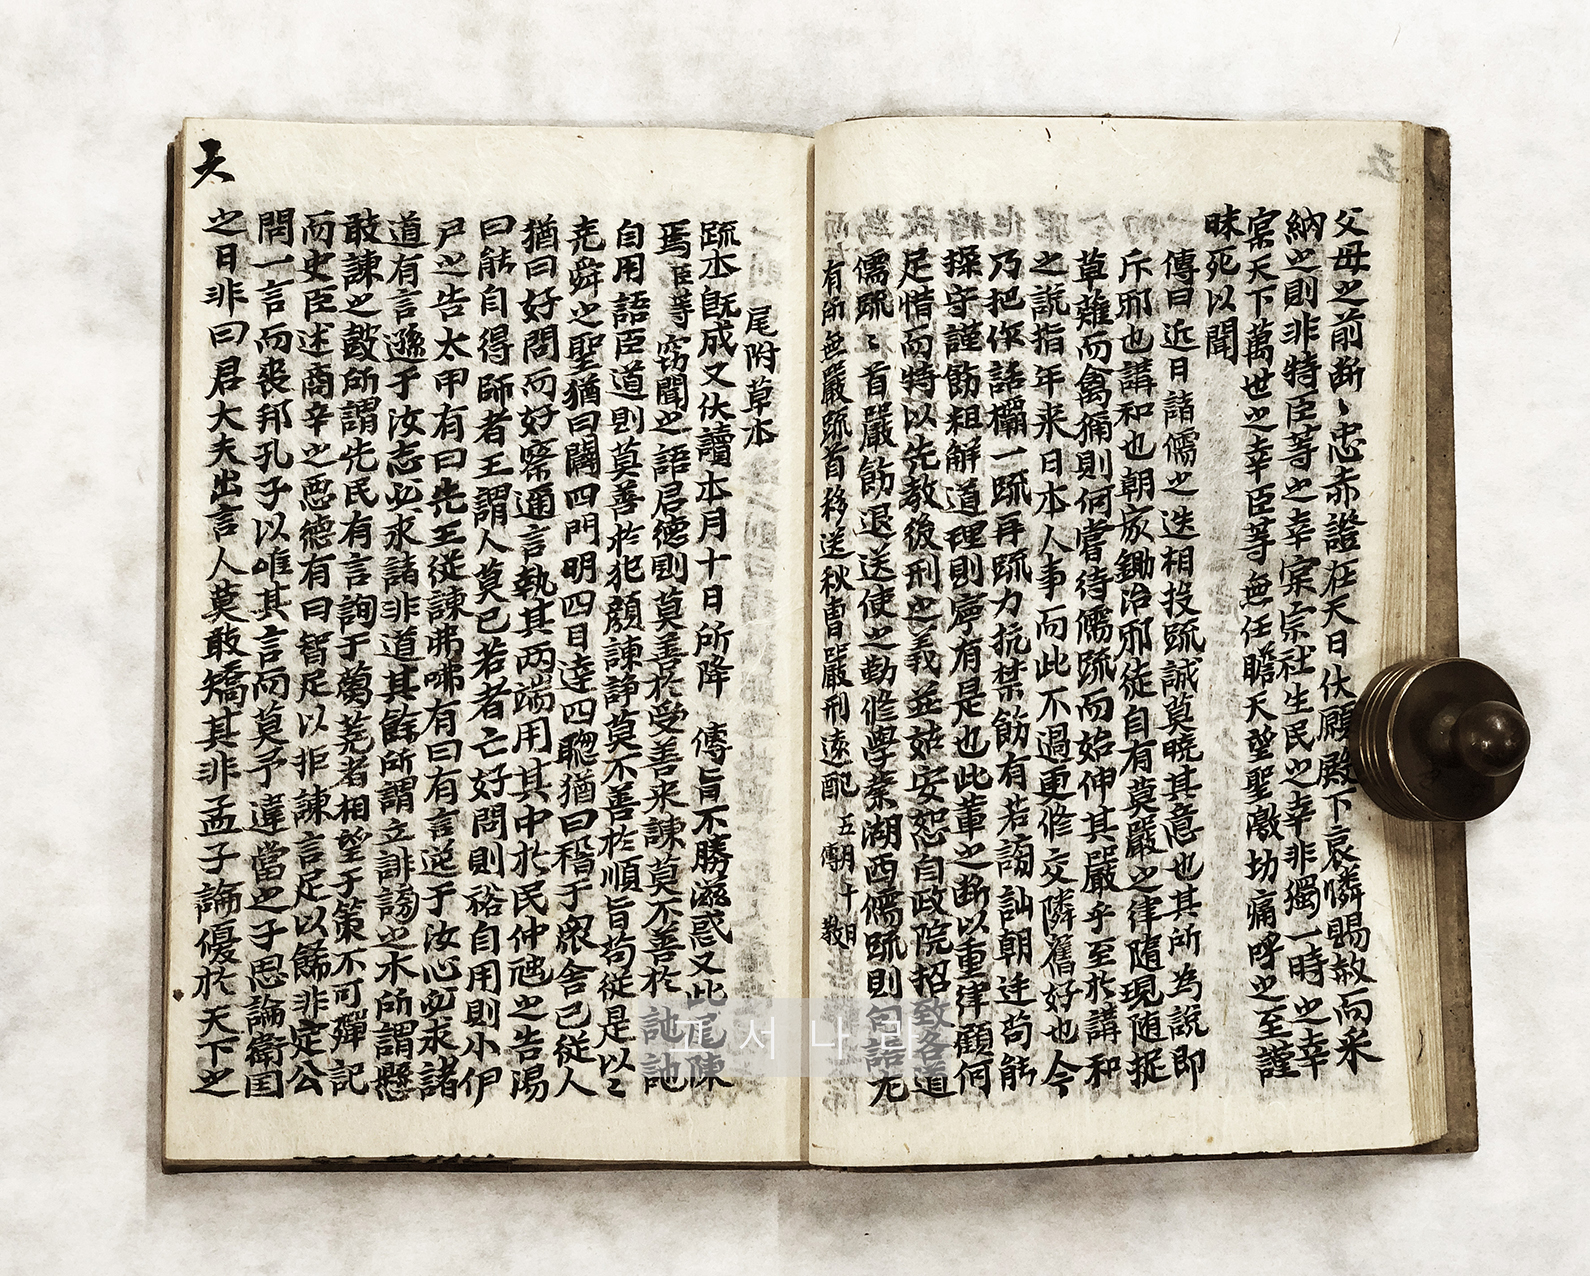 父母之前斷〻忠赤證在天日伏願殿下哀憐賜赦而采
納之則非特臣等之幸宗社生民之幸非獨一時之幸
寔天下萬世之幸臣等無任瞻天望聖激切痛呼之至謹
昧死以聞
傳曰近日諸儒之迭相投疏誠莫曉其意也其所為說卽
斥邪也講和也朝家鋤治邪徒自有莫嚴之律隨現随捉
草薙而禽獮則何嘗待儒疏而始伸其嚴乎至於講和
之說指年来日本人事而此不過更修交隣舊好也今
乃把作話欛一疏再疏力抗禁飭有若謗訕朝廷苟能
操守謹飭粗解道理則寧有是也此輩之斷以重律顧何
足惜而特以先教後刑之義並姑安恕自政院招致各道
儒疏〻首嚴飭退送使之勤修學業湖西儒疏則句語尤
有所無嚴疏首移送秋曹嚴刑遠配 五月十
傳教
尾附草本
疏本旣成又伏讀本月十日所降 傳旨不勝滋惑又此尾陳
焉臣等窃聞之語君德則莫善於受善来諫莫不善於訑訑
自用語臣道則莫善於犯顔諫諍莫不善於順旨苟從是以〻
堯舜之聖猶曰闢四門明四目達四聰猶曰稽于衆舍己從人
猶曰好問而好察邇言執其两端用其中於民仲虺之告湯
曰能自得師者王謂人莫己若者亡好問則裕自用則小伊
尹之告太甲有曰先王從諫弗咈有曰有言逆于汝心必求諸
道有言遜于汝志必求諸非道其餘所謂立誹謗之木所謂懸
敢諫之鼓所謂先民有言詢于蒭蕘者相望于策不可殫記
而史臣述商辛之惡德有曰智足以拒諫言足以餙非定公
問一言而喪邦孔子以唯其言而莫予違當之子思論衛国
之日非曰君大夫出言人莫敢矯其非孟子論優於天下之
天
고서나라